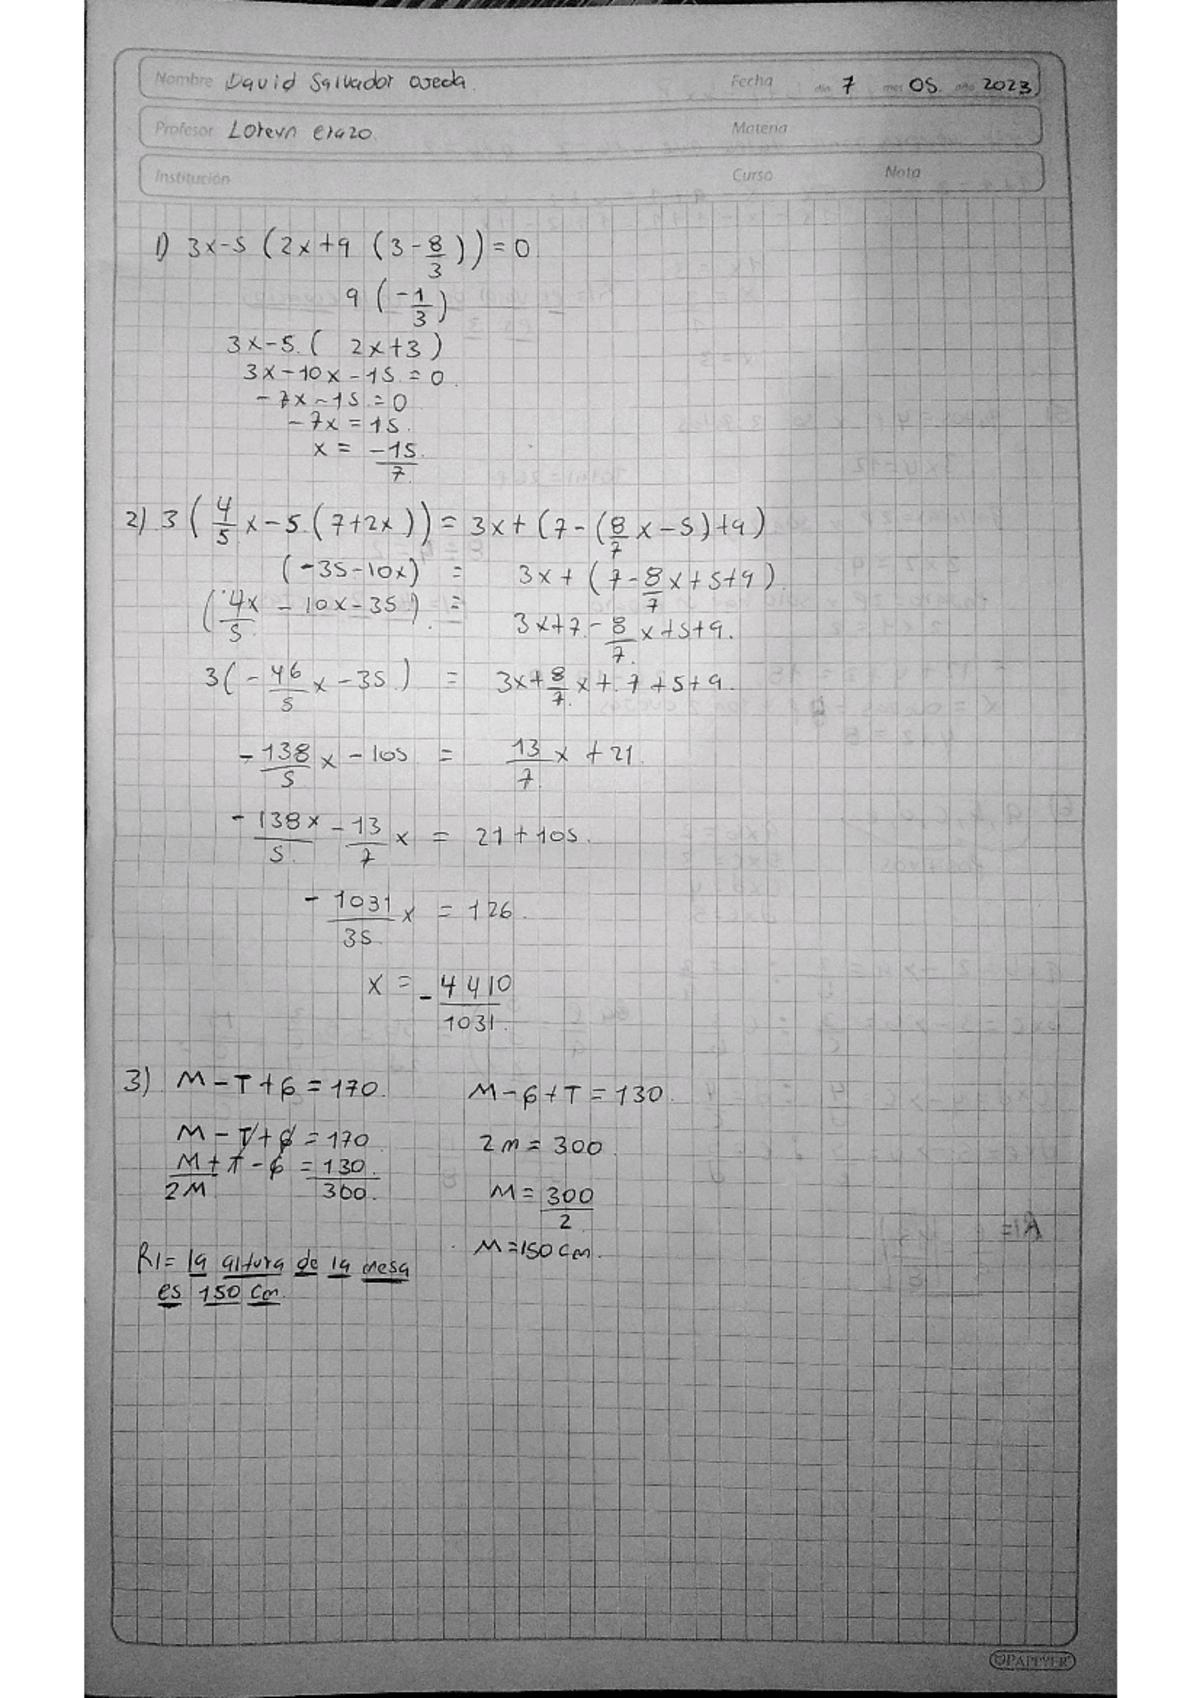 Nombre David Salvador Ojeda. Fecha día 7 mes 05. año 2023
Profesor Loreyn erazo. Materia
Institución Curso Nota
1) 3x-5 (2x+9 (3-8/3))=0.
9 (-1/3)
3x-5.( 2x+3)
3x-10x-15.=0.
-7x-15.=0
-7x=15.
x= -15/7.
2) 3 (4/5 x-5.(7+2x))=3x+(7-(8/7 x-5)+9)
(-35-10x) = 3x+ (7-8/7 x+5+9)
(4x/5 - 10x-35). = 3x+7-8/7 x+5+9.
3(-46/5 x-35) = 3x+8/7 x+.7+5+9.
-138/5 x-105 = 13/7 x+21.
-138x/5 -13/7 x = 21+105.
-1031/35 x = 126.
x = -4410/1031.
3) M-T+6=170. M-6+T=130.
M-T+6=170 2m=300.
M+T-6=130.
2M 300. M=300/2
M=150cm.
R1= la altura de la mesa
es 150 cm.
PAPPYER